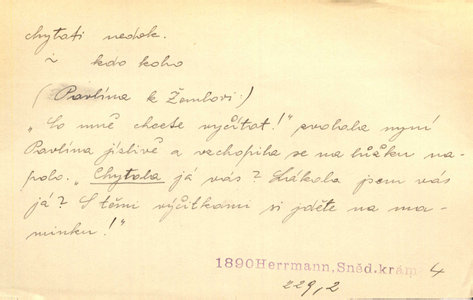 chytati nedok.
~ kdo koho
(Pavlína k Žemlovi:)
„Co mně chcete vyčítat!" zvolala nyní
Pavlína jízlivě a vzchopila se na lůžku na-
polo. „Chytala já vás? Lákala jsem vás
já? S těmi výčitkami si jděte na ma-
minku!"
1890 Herrmann, Sněd. krám 4
229,2